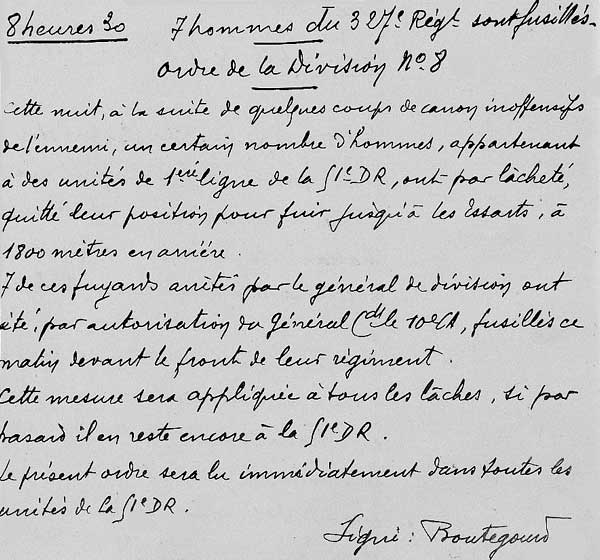 8 heures 30 7 hommes du 327e Régt sont fusillés.
Ordre de la Division No 8
Cette nuit, à la suite de quelques coups de canon inoffensifs
de l'ennemi, un certain nombre d'hommes, appartenant
à des unités de 1ère ligne de la 51e DR, ont par lâcheté,
quitté leur position pour fuir jusqu'à les Essarts, à
1800 mètres en arrière.
7 de ces fuyards arrêtés par le général de division ont
été, par autorisation du Général Cdt le 10e CA, fusillés ce
matin devant le front de leur régiment.
Cette mesure sera appliquée à tous les lâches, si par
hasard il en reste encore à la 51e DR.
Le présent ordre sera lu immédiatement dans toutes les
unités de la 51e DR.
Signé : Boutegourd